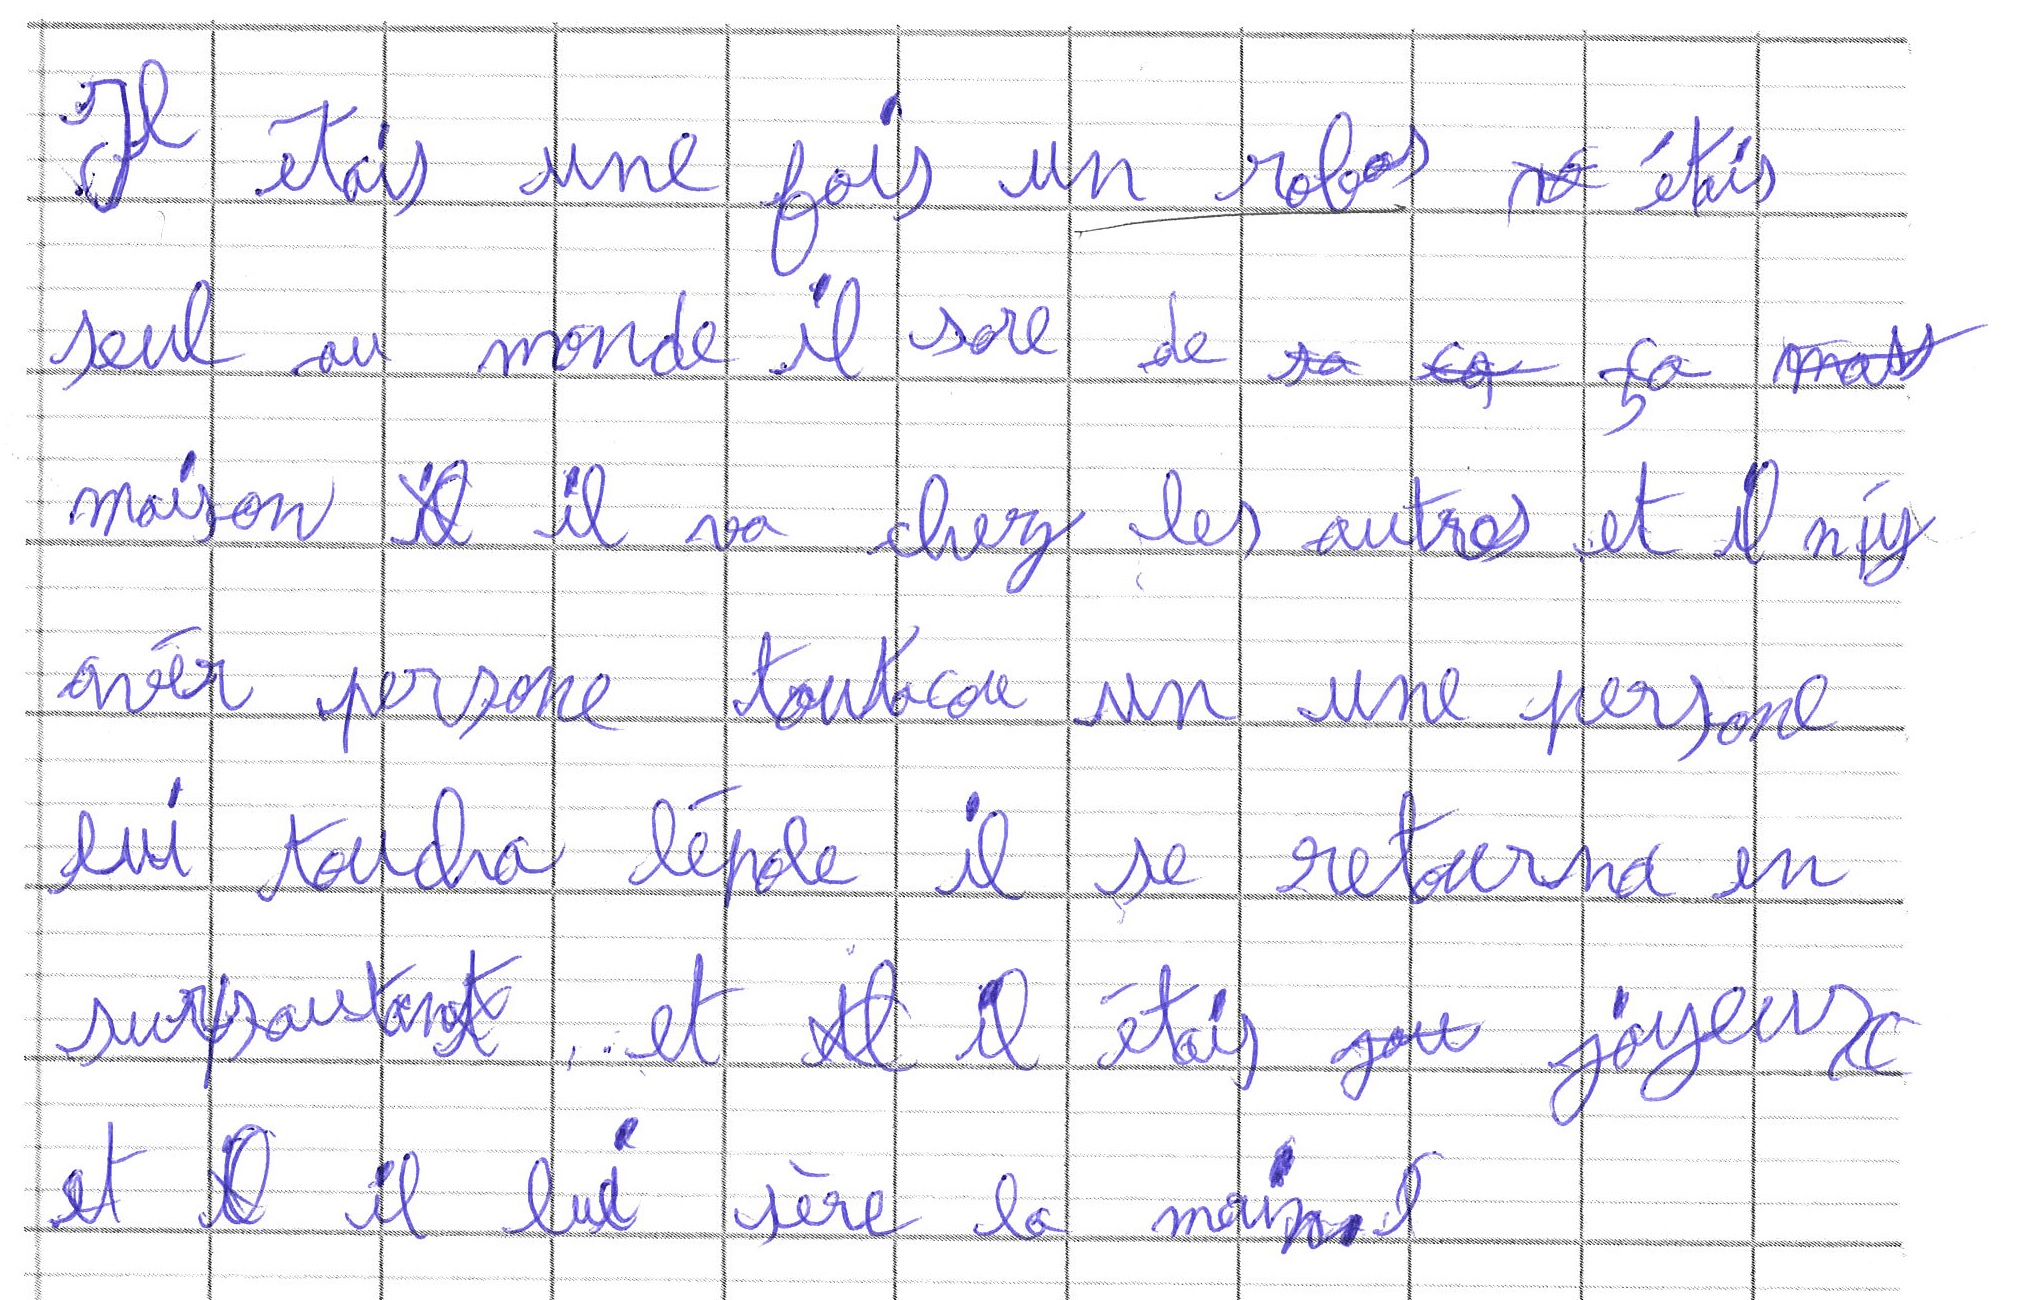 Il étais une fois un robos étais
seul au monde il sore de ça
maison il va chez les autres et il n'y
avér persone toutacou un une persone
lui toucha l'épole il se retourna en
sursautant et il étais joyeux
et il lui sère la main.